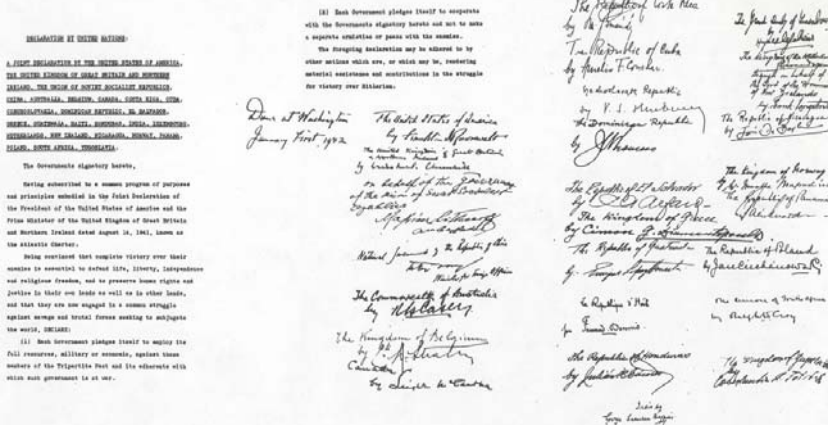 DECLARATION BY UNITED NATIONS:
A JOINT DECLARATION BY THE UNITED STATES OF AMERICA,
THE UNITED KINGDOM OF GREAT BRITAIN AND NORTHERN
IRELAND, THE UNION OF SOVIET SOCIALIST REPUBLICS,
CHINA, AUSTRALIA, BELGIUM, CANADA, COSTA RICA, CUBA,
CZECHOSLOVAKIA, DOMINICAN REPUBLIC, EL SALVADOR,
GREECE, GUATEMALA, HAITI, HONDURAS, INDIA, LUXEMBOURG,
NETHERLANDS, NEW ZEALAND, NICARAGUA, NORWAY, PANAMA,
POLAND, SOUTH AFRICA, YUGOSLAVIA.
The Governments signatory hereto,
Having subscribed to a common program of purposes
and principles embodied in the Joint Declaration of
the President of the United States of America and the
Prime Minister of the United Kingdom of Great Britain
and Northern Ireland dated August 14, 1941, known as
the Atlantic Charter.
Being convinced that complete victory over their
enemies is essential to defend life, liberty, independence
and religious freedom, and to preserve human rights and
justice in their own lands as well as in other lands,
and that they are now engaged in a common struggle
against savage and brutal forces seeking to subjugate
the world, DECLARE:
(1) Each Government pledges itself to employ its
full resources, military or economic, against those
members of the Tripartite Pact and its adherents with
which such government is at war.
(2) Each Government pledges itself to cooperate
with the Governments signatory hereto and not to make
a separate armistice or peace with the enemies.
The foregoing declaration may be adhered to by
other nations which are, or which may be, rendering
material assistance and contributions in the struggle
for victory over Hitlerism.
Done at Washington
January First, 1942
The United States of America
by Franklin D. Roosevelt
The United Kingdom of Great Britain
& Northern Ireland
by Winston Churchill
on behalf of the Government
of the Union of Soviet Socialist
Republics
Maxim Litvinoff
Ambassador
National Government of the Republic of China
Minister for Foreign Affairs
The Commonwealth of Australia
by R. G. Casey
The Kingdom of Belgium
by
Canada
by Leighton McCarthy
The Republic of Costa Rica
by
The Republic of Cuba
by Aurelio F. Concheso
Czechoslovak Republic
by V. S. Hurban
The Dominican Republic
by
The Republic of El Salvador
by
The Kingdom of Greece
by Cimon
The Republic of Guatemala
by
La République d'Haiti
par Fernand Dennis
The Republic of Honduras
by Julián R. Cáceres
India
Girja Shankar Bajpai
The Grand Duchy of Luxembourg
by
The Kingdom of the Netherlands
by Frank Langstone
The Republic of Nicaragua
by
The Kingdom of Norway
by
The Republic of Panama
by
The Republic of Poland
by Jan Ciechanowski
The Union of South Africa
by Ralph W. Close
The Kingdom of Yugoslavia
by
Constantin A. Fotitch